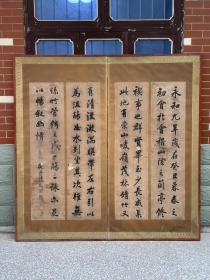 永和九年歲在癸丑暮春之
初會於會稽山陰之蘭亭修
禊事也群賢畢至少長咸集
此地有崇山峻嶺茂林脩竹又
有清流激湍映帶左右引以
為流觴曲水列坐其次雖無
絲竹管絃之盛一觴一詠亦足
以暢敘幽情